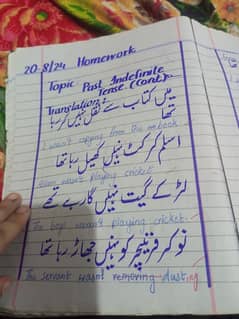 20-8/24 Homework
Topic Past Indefinite
Tense (Cont).
Translation:
میں کتاب سے نقل نہیں کر رہا
تھا
I wasn't copying from the book
اسلم کرکٹ نہیں کھیل رہا تھا
wasn't playing cricket
لڑکے گیت نہیں گا رہے تھے
The boys weren't playing cricket.
نوکر فرنیچر کو نہیں جھاڑ رہا تھا
The servant wasn't removing dusting